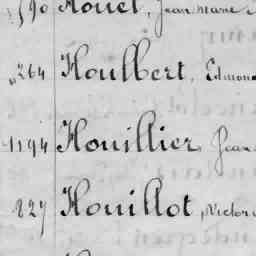 590 Houel, Jean Marie
264 Houlbert, Edmond
1194 Houillier, Jean
827 Houillot, Victor